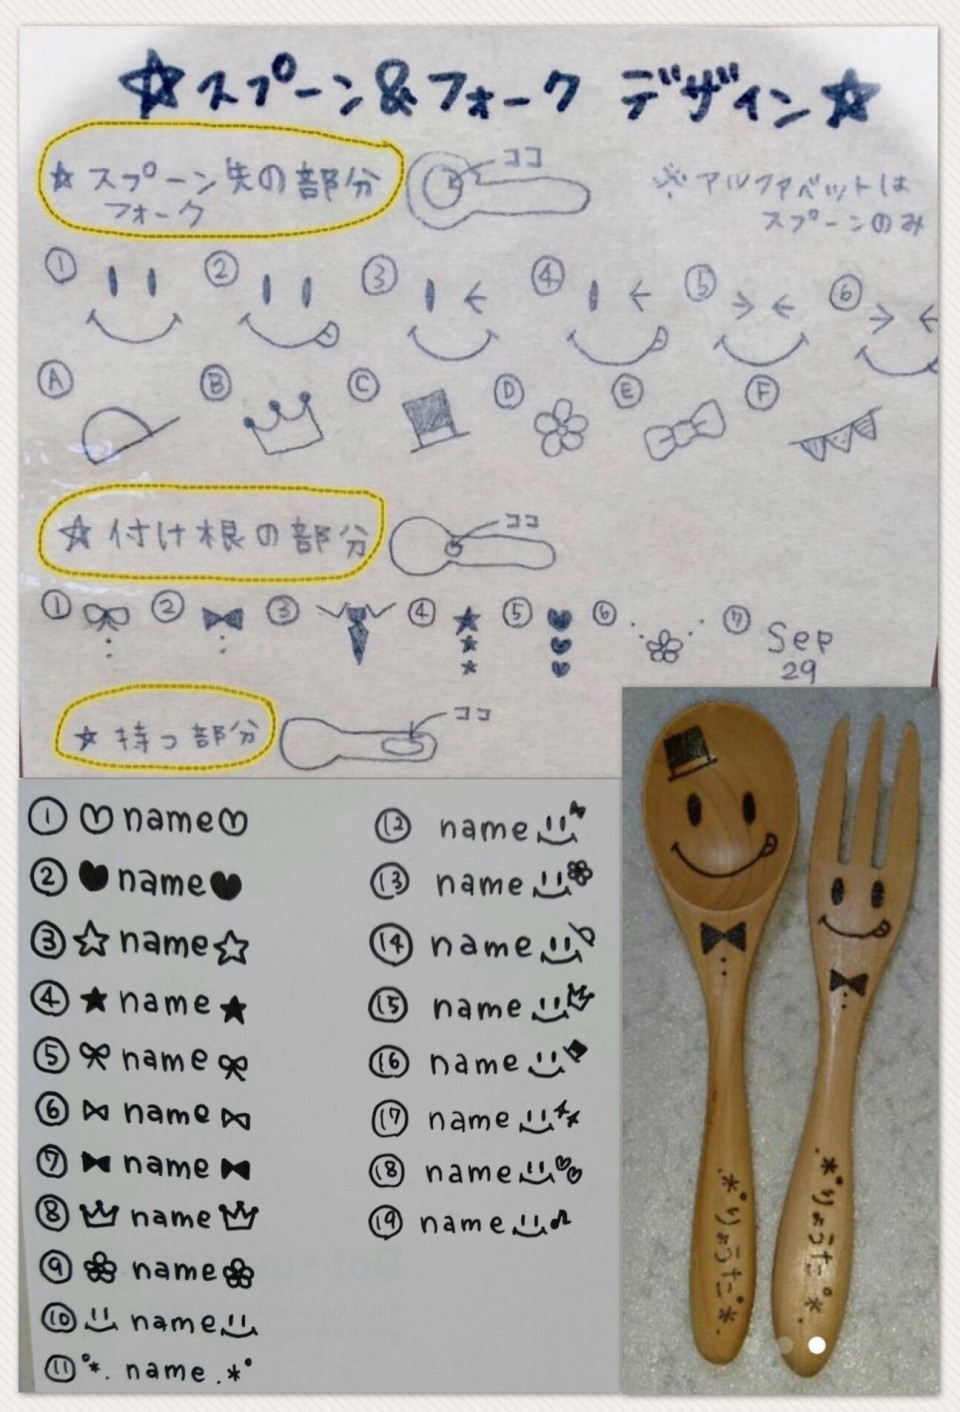 ☆スプーン&フォーク デザイン☆
☆スプーン先の部分
フォーク
ココ
※アルファベットは
スプーンのみ
① ② ③ ④ ⑤ ⑥
Ⓐ Ⓑ Ⓒ Ⓓ Ⓔ Ⓕ
☆付け根の部分
ココ
① ② ③ ④ ⑤ ⑥ ⑦ Sep
29
☆持つ部分
ココ
① ♡name♡
② ♥name♥
③ ☆name☆
④ ★name★
⑤ name
⑥ name
⑦ name
⑧ name
⑨ name
⑩ name
⑪ °*. name .*°
⑫ name
⑬ name
⑭ name
⑮ name
⑯ name
⑰ name
⑱ name
⑲ name♪
.*°りょうた°*.
.*°りょうた°*.